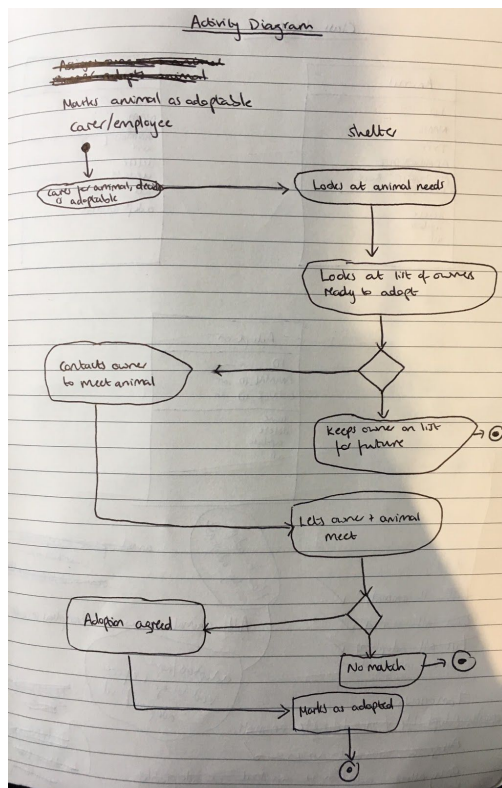 Activity Diagram
Marks animal as adoptable
Carer/employee
Shelter
Cares for animal, decides
is adoptable
Looks at animal needs
Looks at list of owners
ready to adopt
Contacts owner
to meet animal
Keeps owner on list
for future
Lets owner + animal
meet
Adoption agreed
No match
Marks as adopted